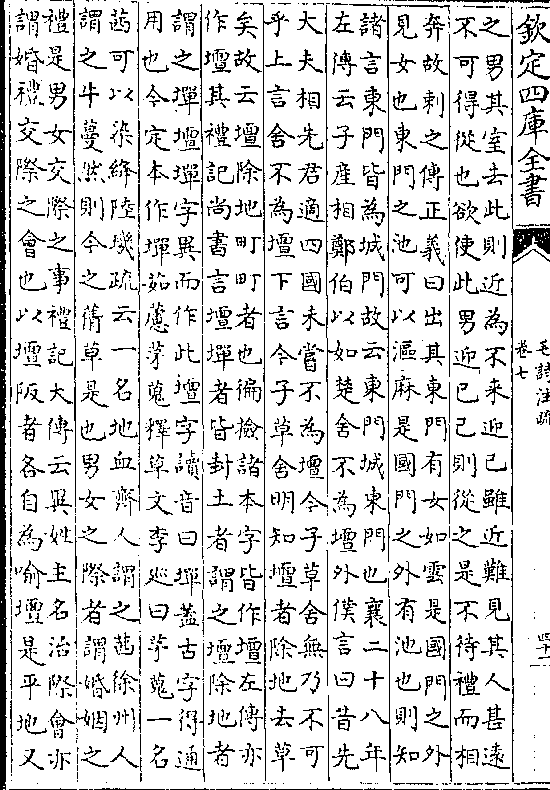 欽定四庫全書
毛詩注疏
卷七
之男其室去此則近為不来迎已雖近難見其人甚遠
不可得從也欲使此男迎已己則從之是不待禮而相
奔故刺之傳正義曰出其東門有女如雲是國門之外
見女也東門之池可以漚麻是國門之外有池也則知
諸言東門皆為城門故云東門城東門也襄二十八年
左傳云子產相鄭伯以如楚舍不為壇外僕言曰昔先
大夫相先君適四國未嘗不為壇今子草舍無乃不可
乎上言舍不為壇下言今子草舍明知壇者除地去草
矣故云壇除地町町者也徧檢諸本字皆作壇左傳亦
作壇其禮記尚書言壇墠者皆封土者謂之壇除地者
謂之墠壇墠字異而作此壇字讀音曰墠蓋古字得通
用也今定本作墠茹藘茅蒐釋草文李廵曰茅蒐一名
茜可以染絳陸璣疏云一名地血齊人謂之茜徐州人
謂之牛蔓然則今之蒨草是也男女之際者謂婚姻之
禮是男女交際之事禮記大傳云異姓主名治際會亦
謂婚禮交際之會也以壇阪者各自為喻壇是平地又